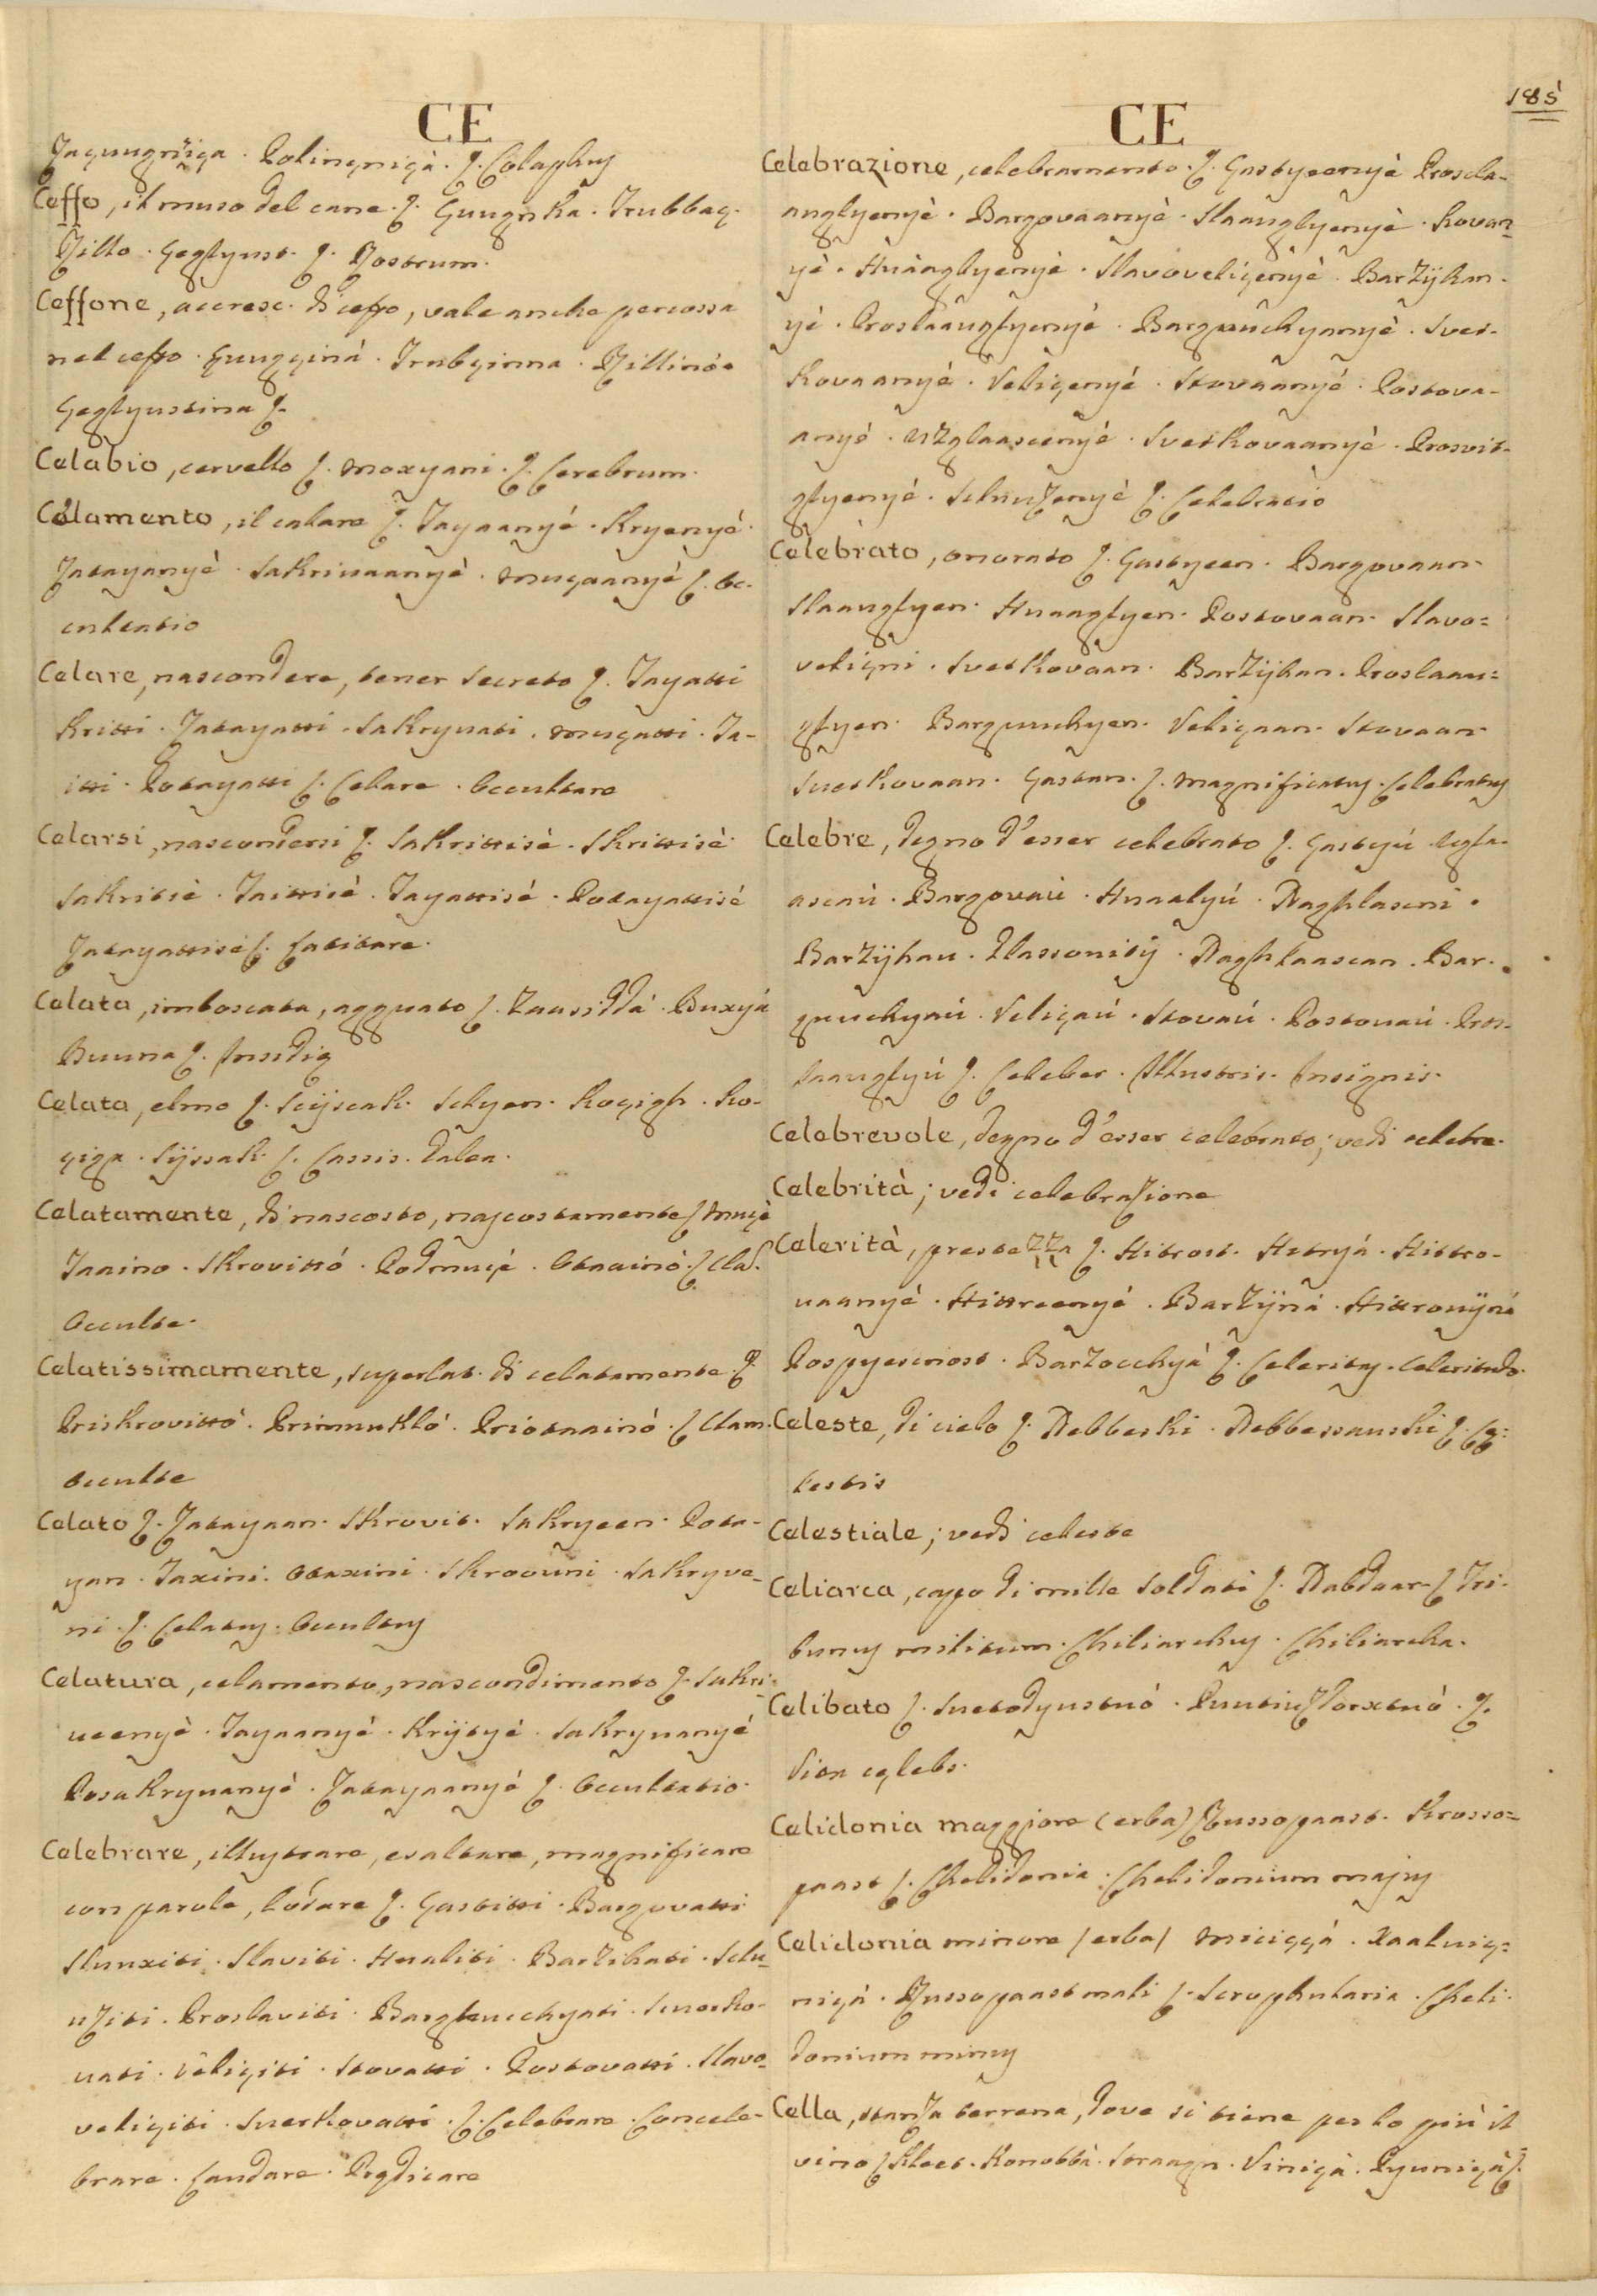 185
CE
Zaçungniça. Polinçniça. ſ. Colaphus
Ceffo, il muso del cane. ſ. Gungnka. Trubbaç.
Rillo. Geglyust. ſ. Rostrum.
Ceffone, accresc. di ceffo, vale anche percossa
nel ceffo. Gungçinà. Trubçinna. Rillinà.
Geglyustina ſ.
Celabio, cervello ſ. Moxyani. ſ. Cerebrum.
Celamento, il celare ſ. Tayaanyé. Kryenyé.
Zatayanyè. Sakrivaanyè. Muçaanyè ſ. Oc-
cultatio
Celare, nascondere, tener secreto ſ. Tayatti
Kritti. Zatayatti. Sakryvati. Muçatti. Ta-
itti. Potayatti ſ. Celare. Occultare
Celarsi, nascondersi ſ. Sakrittisè. Skrittisè.
Sakritisè. Taittisè. Tayattisé. Potayattisé
Zatayattisé ſ. Latitare.
Celata, imboscata, agguato ſ. Zaussiddà. Buxyà
Buuna ſ. Insidiæ
Celata, elmo ſ. Scijscak. Schyen. Koçigh. Ko-
çiga. Sijssak. ſ. Cassis. Galea.
Celatamente, di nascosto, nascostamente ſ. Muçè
Taaino. Skrovittó. Podmuçé. Otaainò. ſ. Cla.
Occulte.
Celatissimamente, superlat. di celatamente. ſ.
Priskrovittó. Primukló. Priotaainò. ſ. Clam.
occulte
Celato ſ. Zatayaan. Skrovit. Sakryeen. Pota-
yan. Taxini. Otaxini. Skroouni. Sakryve-
ni. ſ. Celatus. Occultus
Celatura, celamento, nascondimento ſ. Sakri-
veenyè. Tayaanyè. Krijtyé. Sakryvanyé
Posakryvanyè. Zatayaanyé ſ. Occultatio.
Celebrare, illustrare, esaltare, magnificare
con parole, lodare ſ. Gastitti. Bargovatti
Slunxiti. Slaviti. Hvaliti. Barzihati. Schu-
uziti. Proslaviti. Barghucchyati. Svetko-
vati. Veliçiti. Stovatti. Postovatti. Slavo-
veliçiti. Svetkovatti. ſ. Celebrare. Concele-
brare. Laudare. Prædicare
CE
Celebrazione, celebramento. ſ. Gastyeenyè Prosla-
anglyenyè. Bargovaanyè. Slaanglyenyè. Kovan-
yè. Hvàaglyenyè. Slavoveliçenyè. Barzijhan-
yè. Proslaauglyenyè. Barguuchyanyè. Svet-
kovaanyé. Veliçenyé. Stovaanyé. Postova-
anyé. Uzglaascenyé. Svetkovaanyè. Prosvit-
glyenyé. Schuuzenyè ſ. Celebratio
Celebrato, onorato ſ. Gastyeen. Bargovaan.
Slaauglyen. Hvaaglyen. Postovaan. Slavo-
veliçni. Svetkovaan. Barzijhan. Proslaau-
glyen. Barguuchyen. Veliçaan. Stovaan.
Svetkovaan. Gastan. ſ. Magnificatus. Celebratus
Celebre, degno d'esser celebrato ſ. Gastyú. Ugla-
ascaú. Bargovaú. Hvaalyú. Raghlasceni.
Barzijhau. Glassonitij. Raghlaascan. Bar-
guuchyaú. Veliçaú. Stovaú. Postovaú. Pros-
laauglyú ſ. Celeber. Illustris. Insignis.
Celebrevole, degno d'esser celebrato; vedi celebre.
Celebrità; vedi celebrazione
Celerità, prestezza ſ. Hitrost. Hitryá. Hittro-
vaanyé. Hittreenyé. Barzijna. Hittrovijná
Pospyescnost. Barzocchyà ſ. Celeritas. Celeritudo.
Celeste, di cielo ſ. Nebbeski. Nebbessanski ſ. Cœ-
lestis
Celestiale; vedi celeste
Celiarca, capo di mille soldati ſ. Nabdaar. ſ. Tri-
bunus militum. Chiliarchus. Chiliarcha.
Celibato ſ. Svetodyustuó. Puutiuſtorxtuò. ſ.
Vita cælebs.
Celidonia maggiore (erba) ſ. Russopaast. Krosso-
paast ſ. Chelidonia. Chelidonium majus
Celidonia minore (erba) Miciççà. Xaaluiç-
niçà. Russopaast mali ſ. Scrophularia. Cheli-
donium minus
Cella, stanza terrena, dove si tiene per lo più il
vino ſ. Kleet. Konobbà. Straaga. Viniçà. Pyuniçà ſ.